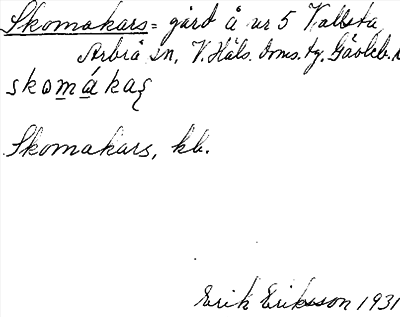 Skomakars = gård å nr 5 Vallsta
Arbrå sn, V. Häls. Doms. tg. Gävleb. l
skomákaș
Skomakars, kb.
Erik Eriksson 1931